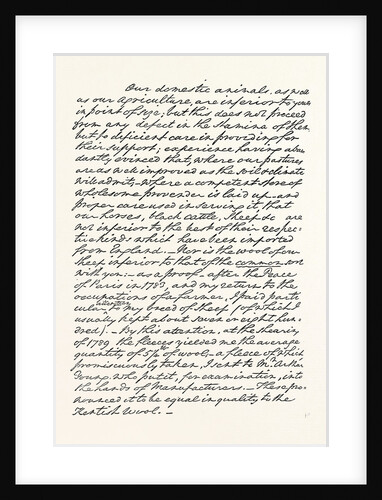 Our domestic animals, as well
as our agriculture, are inferior to yours
in point of size; but this does not proceed
from any defect in the stamina of them,
but to deficient care in providing for
their support; experience having abun
dantly evinced that, where our pastures
are as well improved as the soil & climate
will admit,—where a competent store of
wholesome provender is laid up—and
proper care used in serving it, that
our horses, black cattle, sheep &c are
not inferior to the best of their respec-
tive kinds which have been imported
from England.—Nor is the wool of our
sheep inferior to that of the common sort
with you:—as a proof—after the Peace
of Paris in 1783, and my return to the
occupation of a farmer, I paid parti
cular attention to my breed of sheep (of which I
usually kept about seven or eight hun
dred).—By this attention, at the shearing
of 1789 the fleeces yielded me the average
quantity of 5¼ lb of wool;—a fleece of which
promiscuously taken, I sent to Mr. Arthur
Young, who put it, for examination, into
the hands of Manufacturers.—These pro-
nounced it to be equal in quality to the
Kentish Wool.—